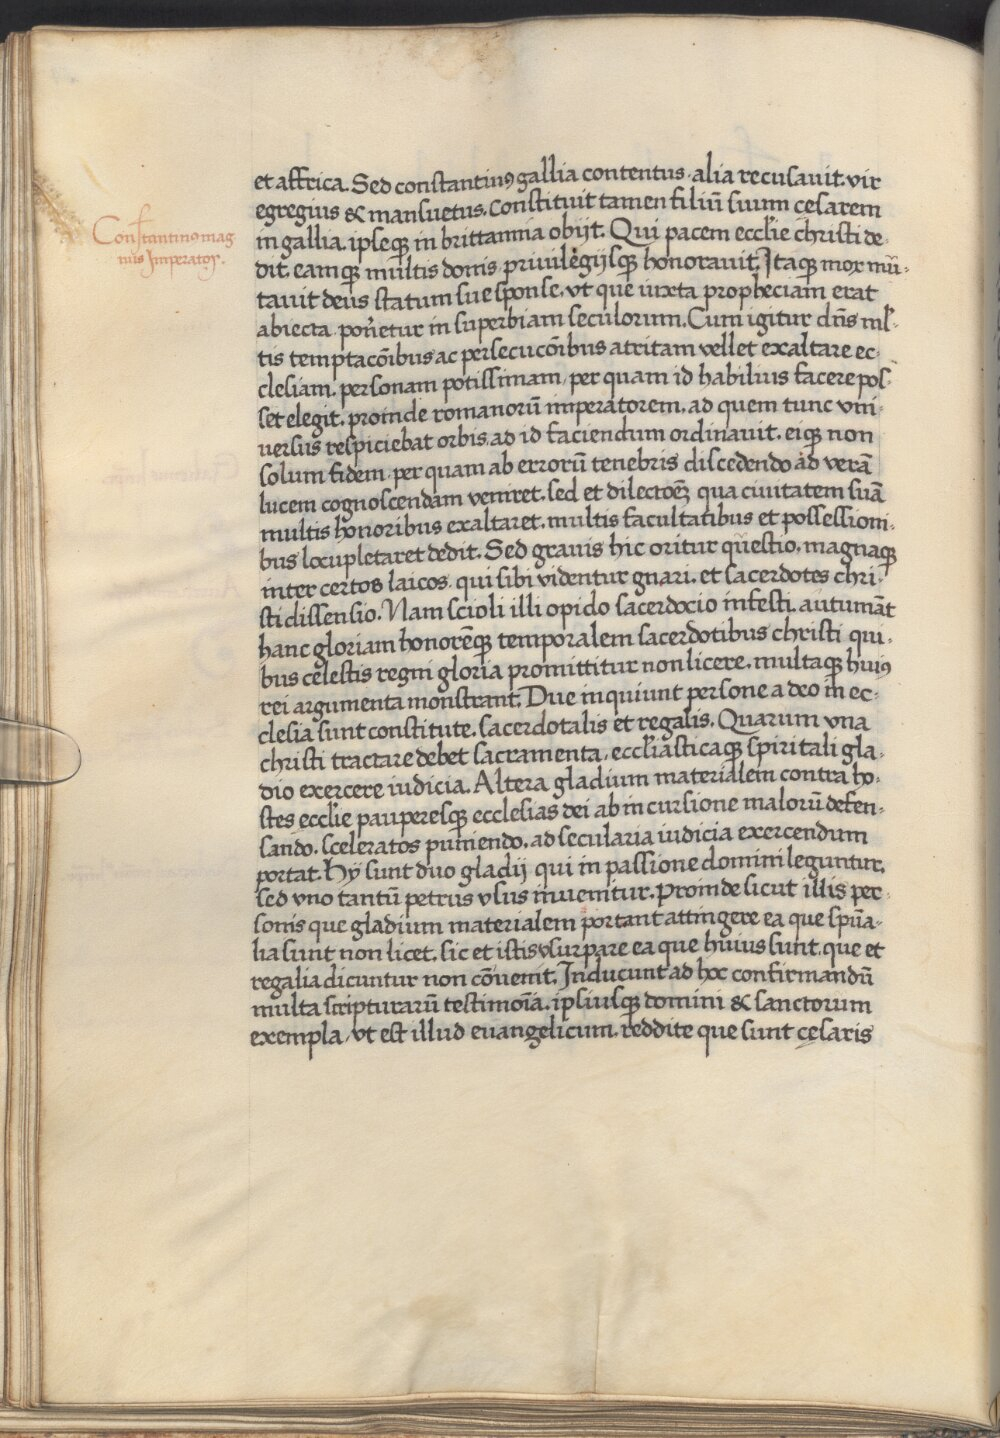 et affrica. Sed constantinꝰ gallia contentus. alia recusauit. vir
egregius & mansuetus. Constituit tamen filiū suum cesarem
Constantinꝰ mag
nus Imperator.
in gallia. ipseqꝫ in brittannia obijt. Qui pacem eccl̄ie christi de-
dit. eamqꝫ multis donis priuilegijsqꝫ honorauit. Itaqꝫ mox mū-
tauit deus statum sue sponse. vt que iuxta propheciam erat
abiecta. pon̄etur in superbiam seculorum. Cum igitur dn̄s ml̄-
tis temptacōibus ac persecucōibus atritam vellet exaltare ec-
clesiam. personam potissimam / per quam id habilius facere pos-
set elegit. proinde romanorū imperatorem. ad quem tunc vni-
uersus respiciebat orbis. ad id faciendum ordinauit. eiqꝫ non
solum fidem. per quam ab errorū tenebris discedendo ad verā
lucem cognoscendam veniret. sed et dilectōeꝫ qua ciuitatem suā
multis honoribus exaltaret. multis facultatibus et possessioni-
bus locupletaret dedit. Sed grauis hic oritur q̄uestio. magnaqꝫ
inter certos laicos. qui sibi videntur gnari. et sacerdotes chri-
sti dissensio. Nam scioli illi opido sacerdocio infesti. autumāt
hanc gloriam honorēqꝫ temporalem sacerdotibus christi qui-
bus celestis regni gloria promittitur non licere. multaqꝫ huiꝰ
rei argumenta monstrant. Due inquiunt persone a deo in ec-
clesia sunt constitute. sacerdotalis et regalis. Quarum vna
christi tractare debet sacramenta. eccl̄iasticaqꝫ spiritali gla-
dio exercere iudicia. Altera gladium materialem contra ho-
stes eccl̄ie pauperesqꝫ ecclesias dei ab incursione malorū defen-
sando. sceleratos puniendo. ad secularia iudicia exercendum
portat. Hij sunt duo gladij qui in passione domini leguntur.
sed vno tantū petrus vsus inuenitur. Proinde sicut illis per-
sonis que gladium materialem portant attingere ea que spūa-
lia sunt non licet. sic et istis vsurpare ea que huius sunt. que et
regalia dicuntur non cōuenit. Inducunt ad hoc confirmandū
multa scripturarū testimoīa. ipsiusqꝫ domini & sanctorum
exempla / vt est illud euangelicum. reddite que sunt cęsaris